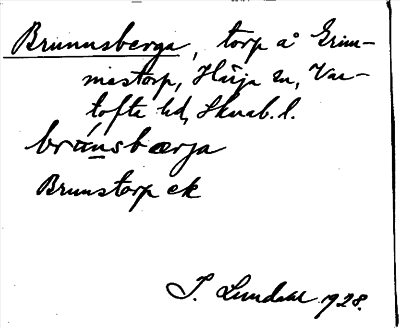 Brunnsberga, torp å Grim-
mestorp, Häija sn, Var-
tofta hd, Skarab. l.
brúnsbærja
Brunstorp ek
J. Lundahl 1928.